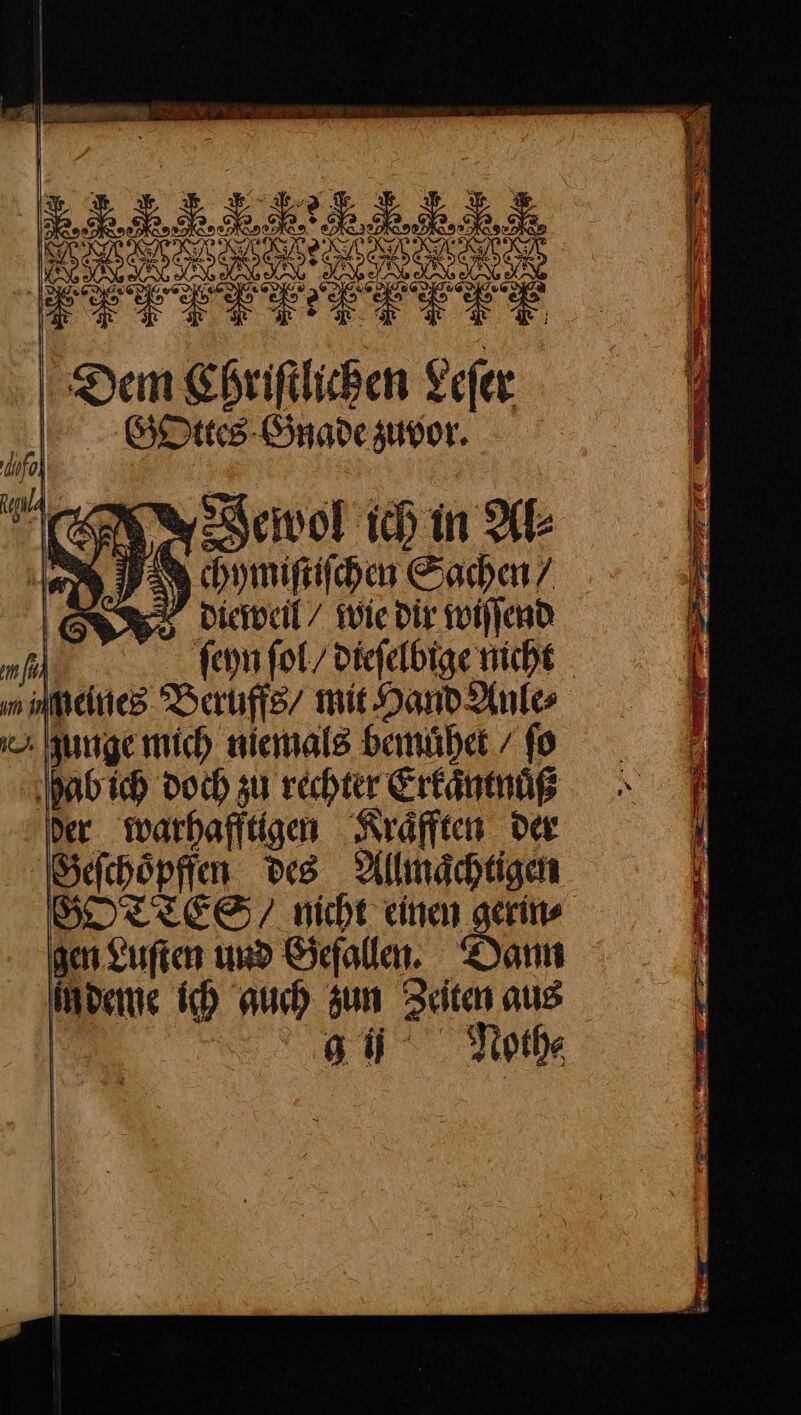 Dem Chriſtlichen Leſer
GOttes Gnade zuvor.
WJewol ich in Al⸗
chymiſtiſchen Sachen /
dieweil / wie dir wiſſend
ſeyn ſol / dieſelbige nicht
meines Beruffs / mit Hand Anle⸗
zunge mich niemals bemuͤhet / ſo
hab ich doch zu rechter Erkaͤntnuͤß
der warhafftigen Kraͤfften der
Geſchoͤpffen des Allmaͤchtigen
GOTTES / nicht einen gerin⸗
gen Luſten und Gefallen. Dann
indeme ich auch zun Zeiten aus
g ij Noth⸗